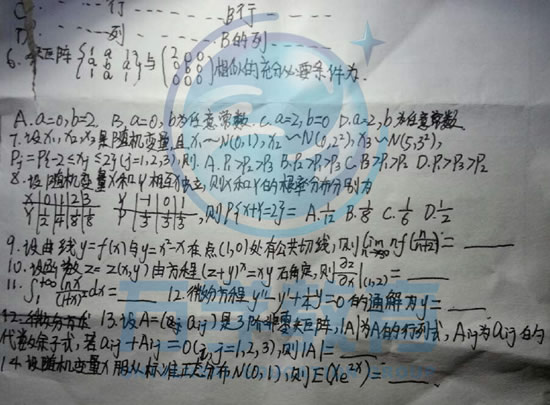 C. 行 B行
D. 列 B的列
6. 矩阵 {1 a 1 a b a 1 a 1} 与 {2 0 0 0 b 0 0 0 0} 相似的充分必要条件为.
A. a=0, b=2 B. a=0, b为任意常数 C. a=2, b=0 D. a=2, b为任意常数
7. 设X₁, X₂, X₃是随机变量, 且X₁~N(0,1), X₂~N(0,2²), X₃~N(5,3²),
Pj=P{-2≤Xj≤2}(j=1,2,3), 则. A. P₁>P₂>P₃ B. P₂>P₁>P₃ C. P₃>P₁>P₂ D. P₁>P₃>P₂
8. 设随机变量X和Y相互独立, 则X和Y的概率分布分别为
X 0 1 2 3 Y -1 0 1
P 1/2 1/4 1/8 1/8 P 1/3 1/3 1/3 , 则P{X+Y=2}= A. 1/12 B. 1/8 C. 1/6 D. 1/2
9. 设曲线y=f(x)与y=x²-x在点(1,0)处有公共切线, 则lim n→∞ nf(n/(n+2))=
10. 设函数z=z(x,y)由方程(z+y)ˣ=xy确定, 则∂z/∂x|(1,2)=
11. ∫₁^{+∞} lnx/(1+x)² dx= 12. 微分方程y''-y'+1/4y=0的通解为y=
12. 微分方 13. 设A=(aij)是3阶非零矩阵, |A|为A的行列式, Aij为aij的
代数余子式, 若aij+Aij=0(i,j=1,2,3), 则|A|=
14. 设随机变量X服从标准正态分布N(0,1), 则E(Xe²ˣ)=